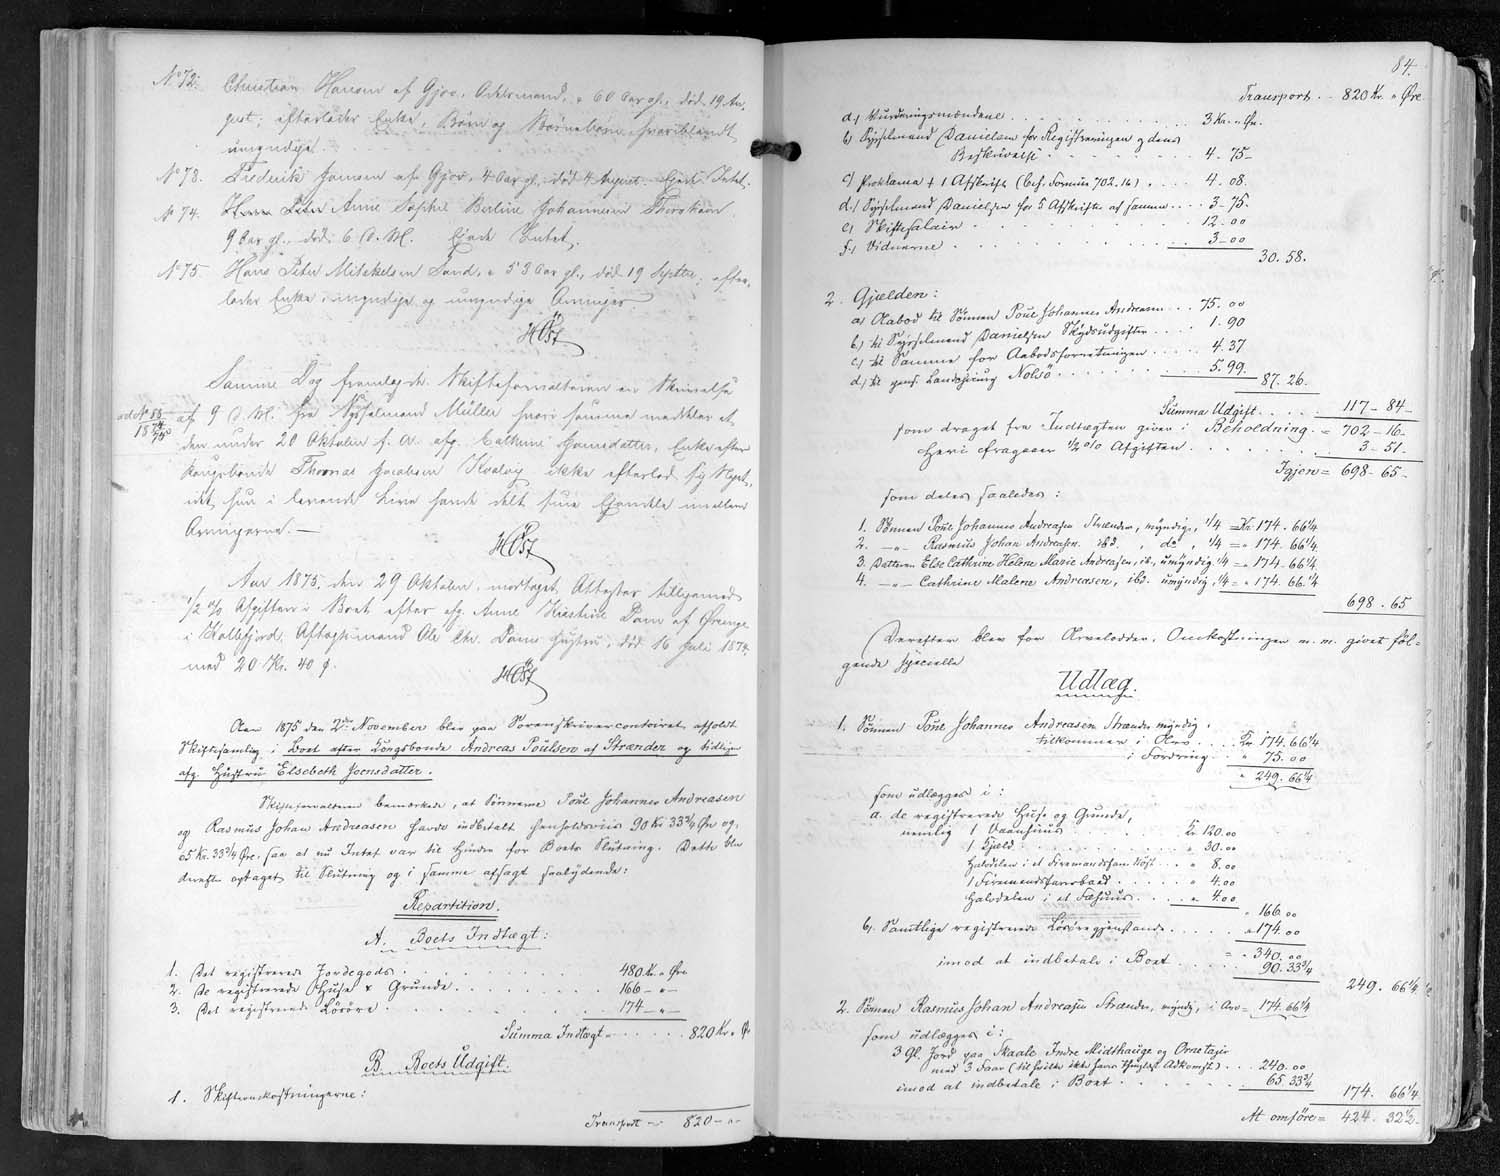 No 72. Christian Hansen af Gjov, 60 Aar gl., død 19 Au-
gust; efterlader Enke, Børn og Børnebørn hvoriblandt
umyndige.
No 73. Frederik Jansen af Gjov, 4 Aar gl., død 4 August. Ejede Intet.
No 74. Anne Sophie Berline Johannesen
9 Aar gl., død 6 d. M. Ejede Intet.
No 75. Hans Peter Mikkelsen Sand, 53 Aar gl., død 19 Septbr.; efter-
lader Enke, myndige og umyndige Arvinger
HØst
Samme Dag fremlagde Skifteforvalteren en Skrivelse
ad No 55 af 9 d. M. fra Sysselmand Müller hvori samme meddeler at
1874/75 den under 20 Oktober f. A. afg. Cathrine Hansdatter, Enke efter
Kongsbonde Thomas Jacobsen Kvalvig ikke efterlod sig Noget,
idet hun i levende Live havde delt sine Ejendele imellem
Arvingerne. —
HØst
Aar 1875, den 29 Oktober, modtaget Attester tilligemed
1/2 % Afgiften i Boet efter afg. Anne Kirstine Dam af Ørenge
i Kollefjord, Aftægtsmand Ole Chr. Dams Hustru, død 16 Juli 1874
med 20 Kr. 40 Ø.
HØst
Aar 1875 den 2den November blev paa Sorenskrivercontoiret afholdt
Skiftesamling i Boet efter Kongsbonde Andreas Poulsen af Strænder og tidligere
afg. Hustru Elsebeth Joensdatter.
Skifteforvalteren bemærkede, at Sønnerne Poul Johannes Andreasen
og Rasmus Johan Andreasen havde indbetalt henholdsviis 90 Kr 33 3/4 Øre og
65 Kr. 33 3/4 Øre, saa at nu Intet var til Hinder for Boets Slutning. Dette blev
derefter optaget til Slutning og i samme afsagt saalydende:
Repartition.
A. Boets Indtægt:
1. Det registrerede Jordegods . . . 480 Kr. " Øre
2. De registrerede Huse & Grunde . . . 166 — " —
3. Det registrerede Løsøre . . . 174 — " —
Summa Indtægt = . . . 820 Kr. " Ør
B. Boets Udgift.
1. Skifteomkostningerne:
Transport — 820 — " —
84.
Transport . . 820 Kr. " Øre
a.) Vurderingsmændene . . . 3 Kr. " Ør.
b) Sysselmand Danielsen for Registreringen og dens
Beskrivelse . . . 4. 75 —
c) Proklama + 1 Afskrift (Bes. Formue 702.16) . . . 4. 08.
d.) Sysselmand Danielsen for 5 Afskrifter af samme . . . 3 — 75.
e.) Skiftesalair . . . 12. 00
f.) Vidnerne . . . 3 — 00
30. 58.
2. Gjælden:
a) Aabod til Sønnen Poul Johannes Andreasen . . . 75. 00
b.) til Sysselmand Danielsen Skydsudgifter . . . 1. 90
c.) til Samme for Aabodsforretningen . . . 4. 37
d.) til Landhuset Nolsö . . . 5. 99.
87. 26.
Summa Udgift . . . 117 — 84 —
som draget fra Indtægten giver i Beholdning = 702 — 16 —
Heri fragaaer 1/2 % Afgiften . . . 3 — 51.
Igjen = 698 — 65 —
som deles saaledes:
1. Sønnen Poul Johannes Andreasen Strænder, myndig, 1/4 = Kr 174. 66 1/4
2. — " — Rasmus Johan Andreasen ibd. , do , 1/4 = " 174. 66 1/4
3. Datteren Else Cathrine Helene Marie Andreasen, ib., umyndig, 1/4 = " 174. 66 1/4
4. — " — Cathrine Malene Andreasen, ibd. umyndig, 1/4 = " 174. 66 1/4
698. 65
Derefter blev for Arvelodder, Omkostninger m. m. givet føl-
gende specielle
Udlæg.
1. Sønnen Poul Johannes Andreasen Strænder myndig,
tilkommer i Arv . . . Kr. 174. 66 1/4
i Fordring . . . " 75. 00
" 249. 66 1/4
som udlægges i:
a. de registrerede Huse og Grunde,
nemlig 1 Vaanhuus . . . Kr. 120. 00
1 Hjeld . . . " 30. 00
Halvdelen i et Firemandsfars Nøst . . . " 8. 00
1 Firemandsfarsbaad . . . " 4. 00
Halvdelen i et Fæhuus . . . " 4. 00
" 166. 00
b). Samtlige registrerede Løsøregjenstande . . . " 174. 00
= " 340. 00
imod at indbetale i Boet . . . 90. 33 3/4
249. 66 1/4
2. Sønnen Rasmus Johan Andreasen Strænder, myndig, i Arv = 174. 66 1/4
som udlægges i:
3 Gl. Jord paa Skaale Indre Midthauge og Ornetajir
med 3 Faar (til hvilke ikke haves thinglæst Adkomst) . . . 240. 00
imod at indbetale i Boet . . . 65. 33 3/4
174. 66 1/4
At omføre = 424. 32 1/2